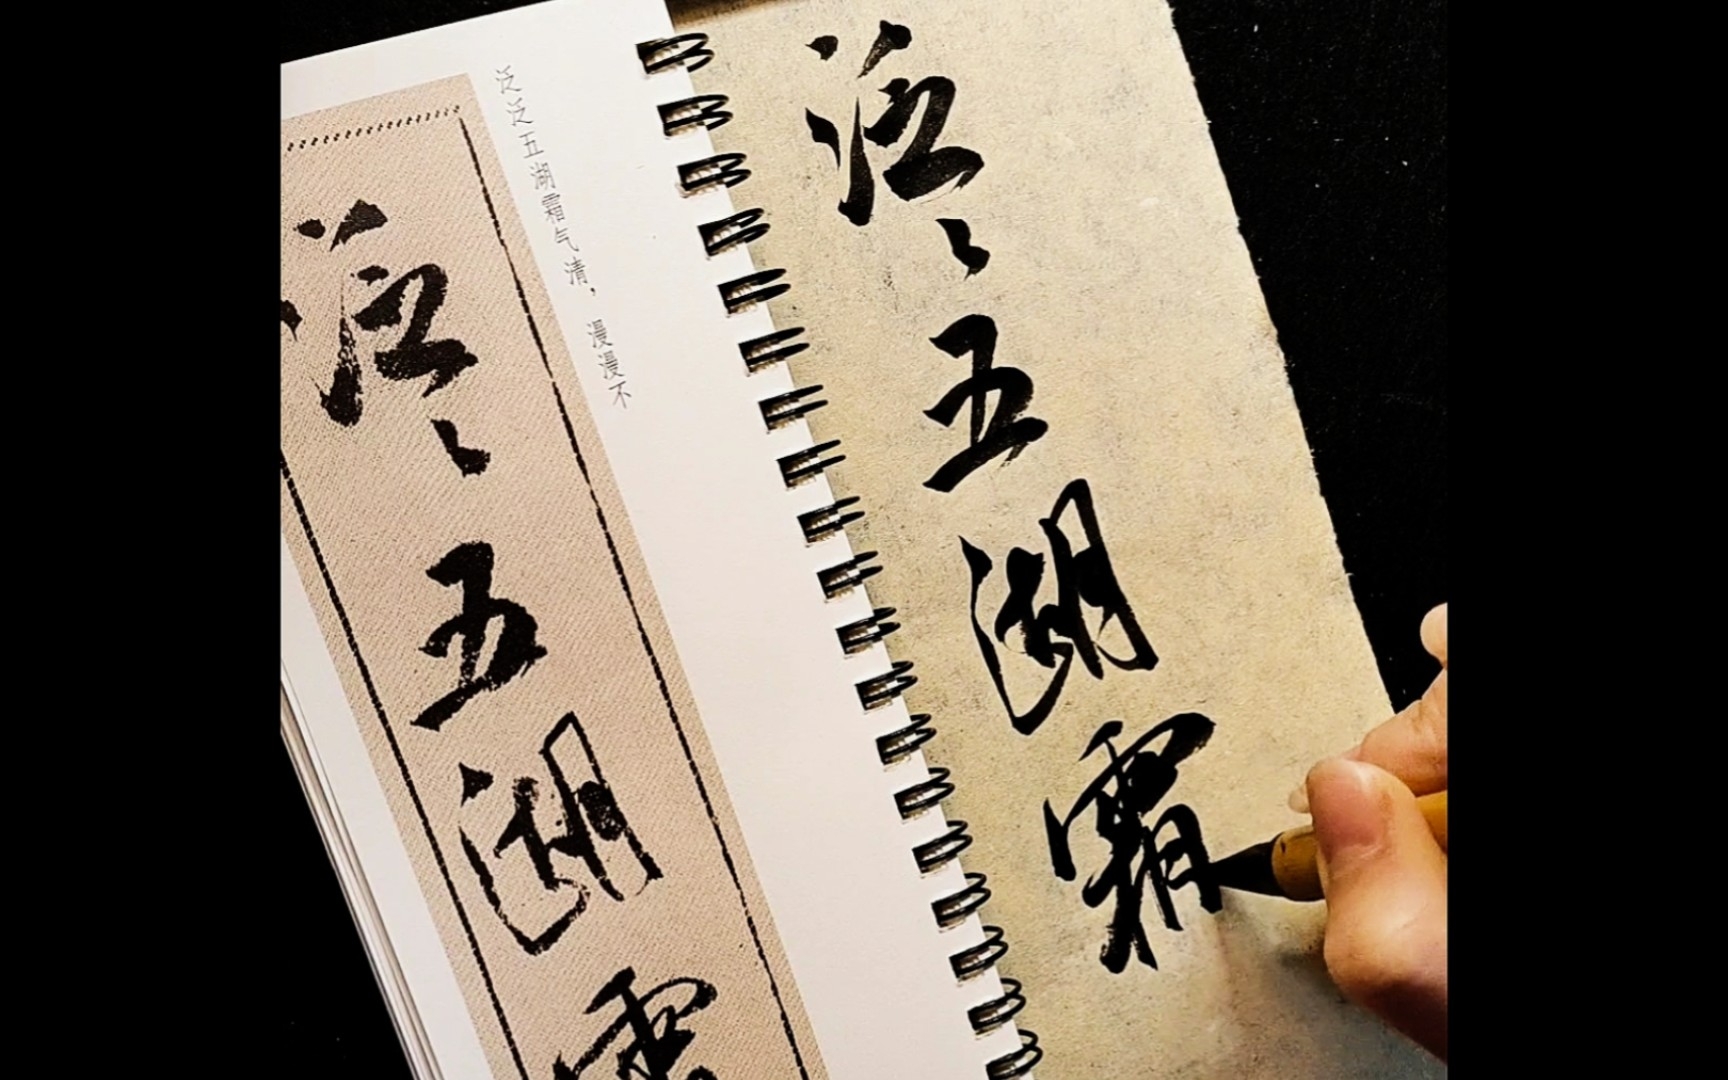 泛〻五湖霜
泛泛五湖霜气清，漫漫不
泛〻五湖霜